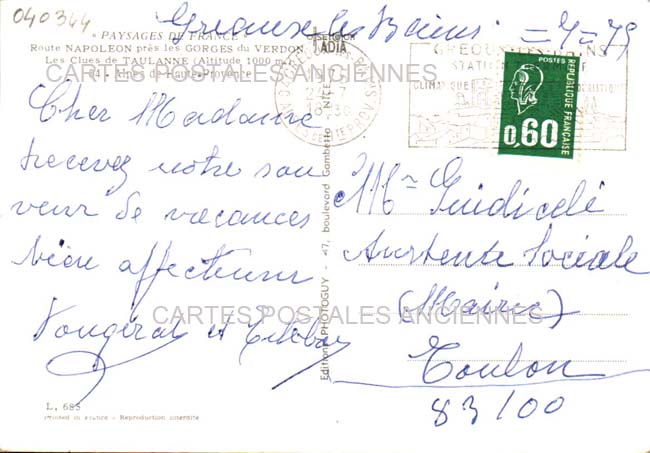 040344
Greoux les Bains = 7 = 79
" PAYSAGES DE FRANCE "
Route NAPOLEON près les GORGES du VERDON
Les Clues de TAULANNE (Altitude 1000 m.)
04 - Alpes de Haute-Provence
CARTES POSTALES ANCIENNES
Cher Madame
recevez notre sou
venir de vacances
bien affectueux
CARTES POSTALES ANCIENNES
L. 685
Printed in France - Reproduction interdite
Editions PHOTOGUY - 47, boulevard Gambetta - NICE
ADIA
18-30
GREOUX-LES-BAINS
STATION
CLIMATIQUE
POSTES
REPUBLIQUE FRANÇAISE
0,60
Guidicelé
Sociale
(Mairie)
Toulon
83100